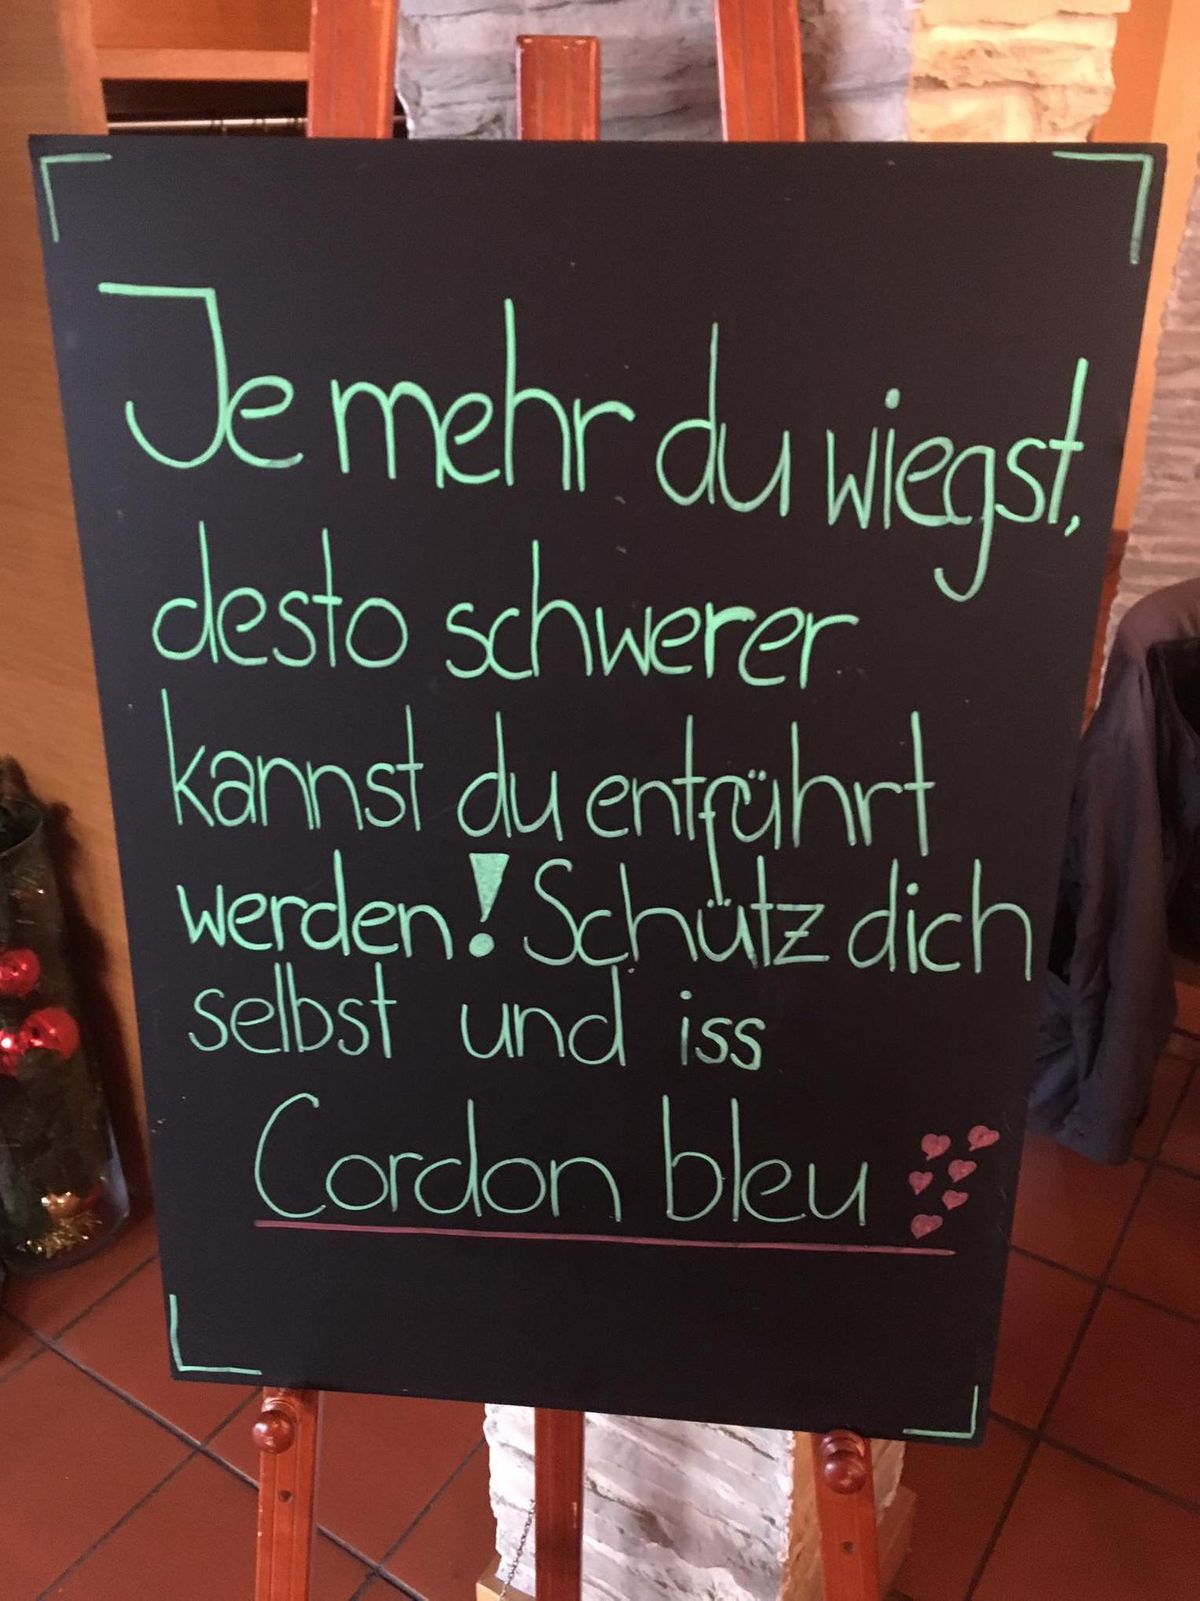 Je mehr du wiegst,
desto schwerer
kannst du entführt
werden! Schütz dich
selbst und iss
Cordon bleu